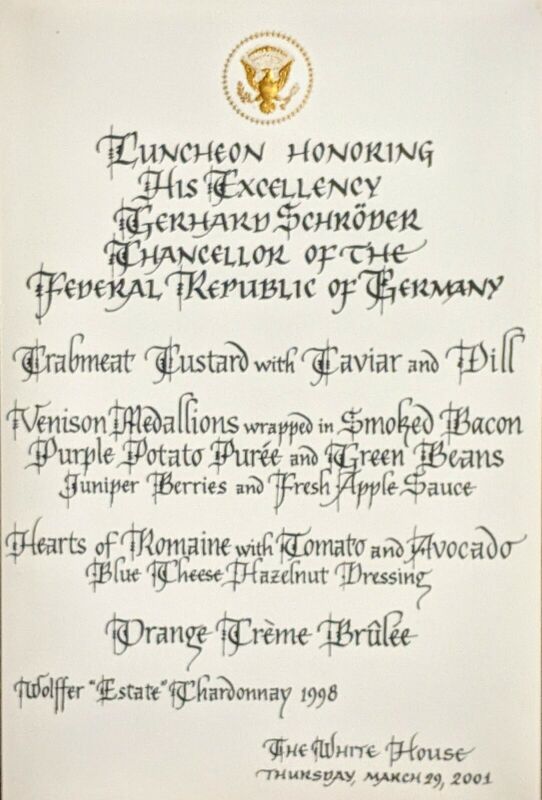 Luncheon honoring
His Excellency
Gerhard Schröder
Chancellor of the
Federal Republic of Germany
Crabmeat Custard with Caviar and Dill
Venison Medallions wrapped in Smoked Bacon
Purple Potato Purée and Green Beans
Juniper Berries and Fresh Apple Sauce
Hearts of Romaine with Tomato and Avocado
Blue Cheese Hazelnut Dressing
Orange Crème Brûlée
Wolffer "Estate" Chardonnay 1998
The White House
Thursday, March 29, 2001